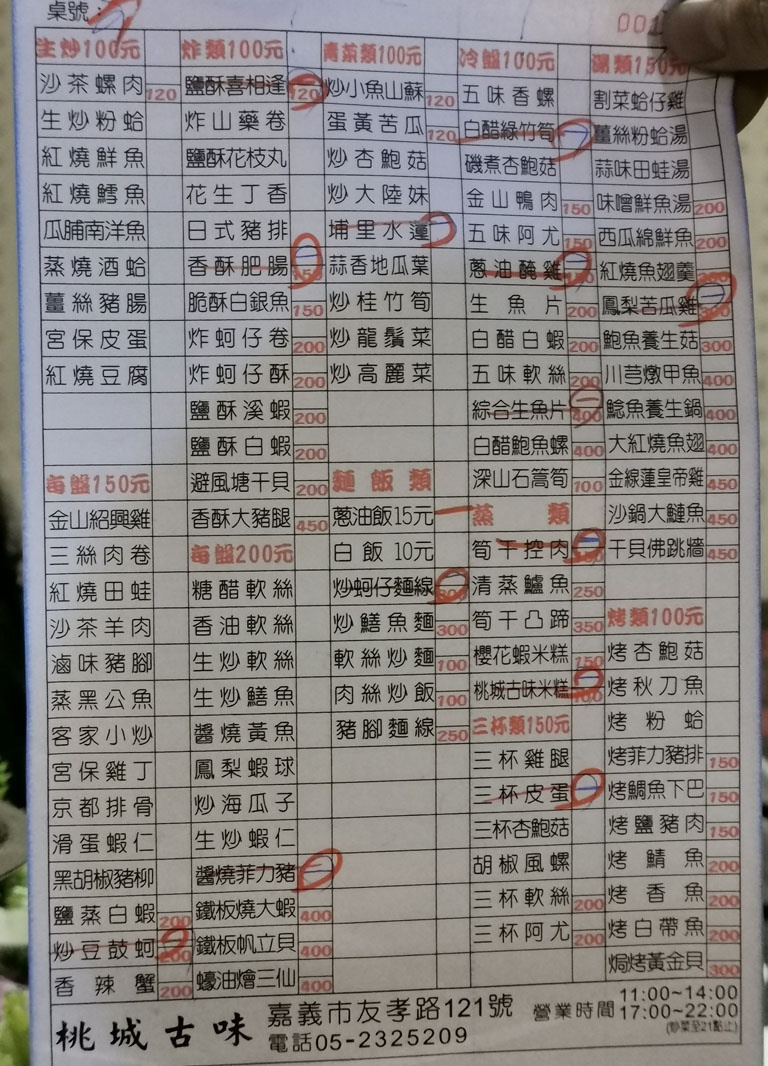 桌號：
001
生炒100元 炸類100元 青菜類100元 冷盤100元 湯類150元
沙茶螺肉120 鹽酥喜相逢120 炒小魚山蘇120 五味香螺 割菜蛤仔雞
生炒粉蛤 炸山藥卷 蛋黃苦瓜120 白醋綠竹筍 薑絲粉蛤湯
紅燒鮮魚 鹽酥花枝丸 炒杏鮑菇 磯煮杏鮑菇 蒜味田蛙湯
紅燒鱈魚 花生丁香 炒大陸妹 金山鴨肉150 味噌鮮魚湯200
瓜脯南洋魚 日式豬排 埔里水蓮 五味阿尤150 西瓜綿鮮魚200
蒸燒酒蛤 香酥肥腸 蒜香地瓜葉 蔥油醃雞 紅燒魚翅羹
薑絲豬腸 脆酥白銀魚150 炒桂竹筍 生魚片200 鳳梨苦瓜雞300
宮保皮蛋 炸蚵仔卷200 炒龍鬚菜 白醋白蝦200 鮑魚養生菇300
紅燒豆腐 炸蚵仔酥200 炒高麗菜 五味軟絲200 川芎燉甲魚400
鹽酥溪蝦200 綜合生魚片400 鯰魚養生鍋400
鹽酥白蝦200 白醋鮑魚螺400 大紅燒魚翅400
每盤150元 避風塘干貝200 麵飯類 深山石篙筍100 金線蓮皇帝雞450
金山紹興雞 香酥大豬腿450 蔥油飯15元 蒸類 沙鍋大鰱魚450
三絲肉卷 每盤200元 白飯10元 筍干控肉 干貝佛跳牆450
紅燒田蛙 糖醋軟絲 炒蚵仔麵線 清蒸鱸魚250
沙茶羊肉 香油軟絲 炒鱔魚麵300 筍干凸蹄350 烤類100元
滷味豬腳 生炒軟絲 軟絲炒麵100 櫻花蝦米糕150 烤杏鮑菇
蒸黑公魚 生炒鱔魚 肉絲炒飯100 桃城古味米糕100 烤秋刀魚
客家小炒 醬燒黃魚 豬腳麵線250 三杯類150元 烤粉蛤
宮保雞丁 鳳梨蝦球 三杯雞腿 烤菲力豬排150
京都排骨 炒海瓜子 三杯皮蛋 烤鯛魚下巴150
滑蛋蝦仁 生炒蝦仁 三杯杏鮑菇 烤鹽豬肉150
黑胡椒豬柳 醬燒菲力豬 胡椒風螺 烤鯖魚200
鹽蒸白蝦200 鐵板燒大蝦400 三杯軟絲200 烤香魚200
炒豆鼓蚵200 鐵板帆立貝400 三杯阿尤200 烤白帶魚200
香辣蟹200 蠔油燴三仙400 焗烤黃金貝300
桃城古味 嘉義市友孝路121號 營業時間 11:00~14:00
電話05-2325209 17:00~22:00
(炒菜至21點止)